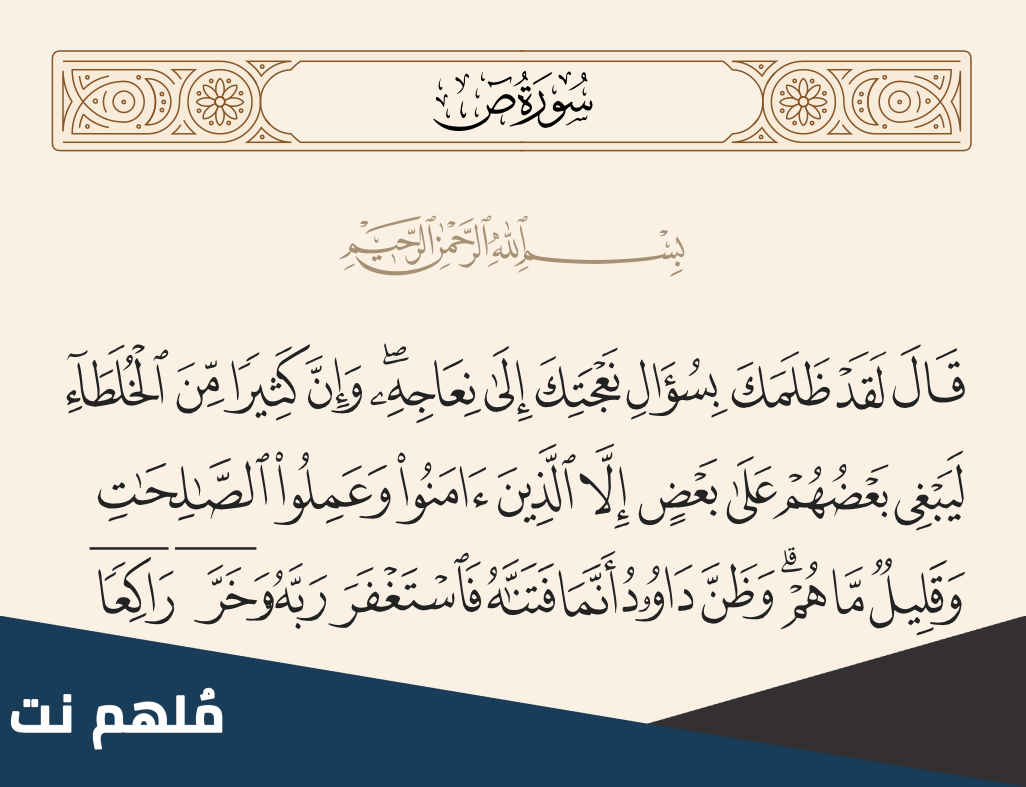 سُورَةُ صٓ
بِسْمِ ٱللَّهِ ٱلرَّحْمَٰنِ ٱلرَّحِيمِ
قَالَ لَقَدْ ظَلَمَكَ بِسُؤَالِ نَعْجَتِكَ إِلَىٰ نِعَاجِهِۦۖ وَإِنَّ كَثِيرًا مِّنَ ٱلْخُلَطَآءِ
لَيَبْغِى بَعْضُهُمْ عَلَىٰ بَعْضٍ إِلَّا ٱلَّذِينَ ءَامَنُوا۟ وَعَمِلُوا۟ ٱلصَّٰلِحَٰتِ
وَقَلِيلٌ مَّا هُمْۗ وَظَنَّ دَاوُۥدُ أَنَّمَا فَتَنَّٰهُ فَٱسْتَغْفَرَ رَبَّهُۥ وَخَرَّ رَاكِعًا
مُلهم نت